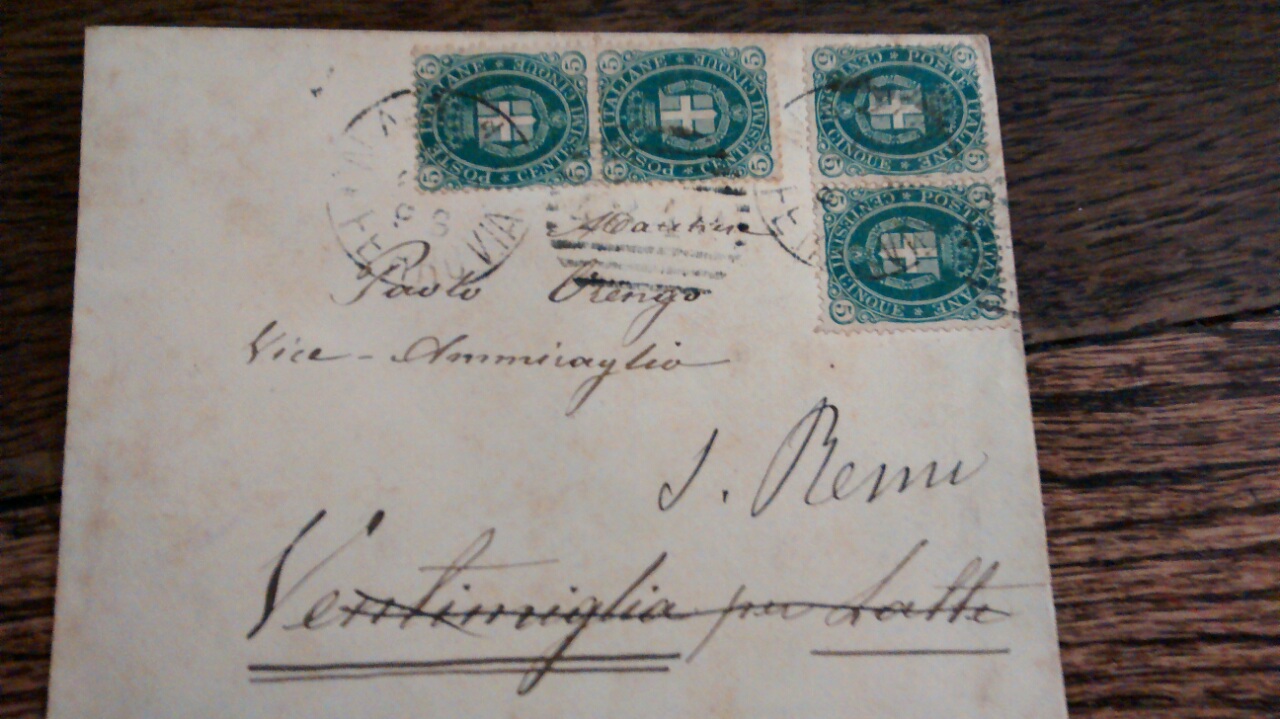 POSTE ITALIANE * CENTESIMI CINQUE * 5 5 5 5
POSTE ITALIANE * CENTESIMI CINQUE * 5 5 5 5
POSTE ITALIANE * CENTESIMI CINQUE * 5 5 5 5
POSTE ITALIANE * CENTESIMI CINQUE * 5 5 5 5
FERROVIA
Paolo Orengo
Vice - Ammiraglio
S. Remo
Ventimiglia per Latte